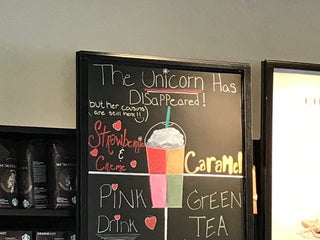 The Unicorn Has
DISappeared!
but her cousins
are still here!!
Strawberries
&
Creme
Caramel
PINK
Drink
GREEN
TEA